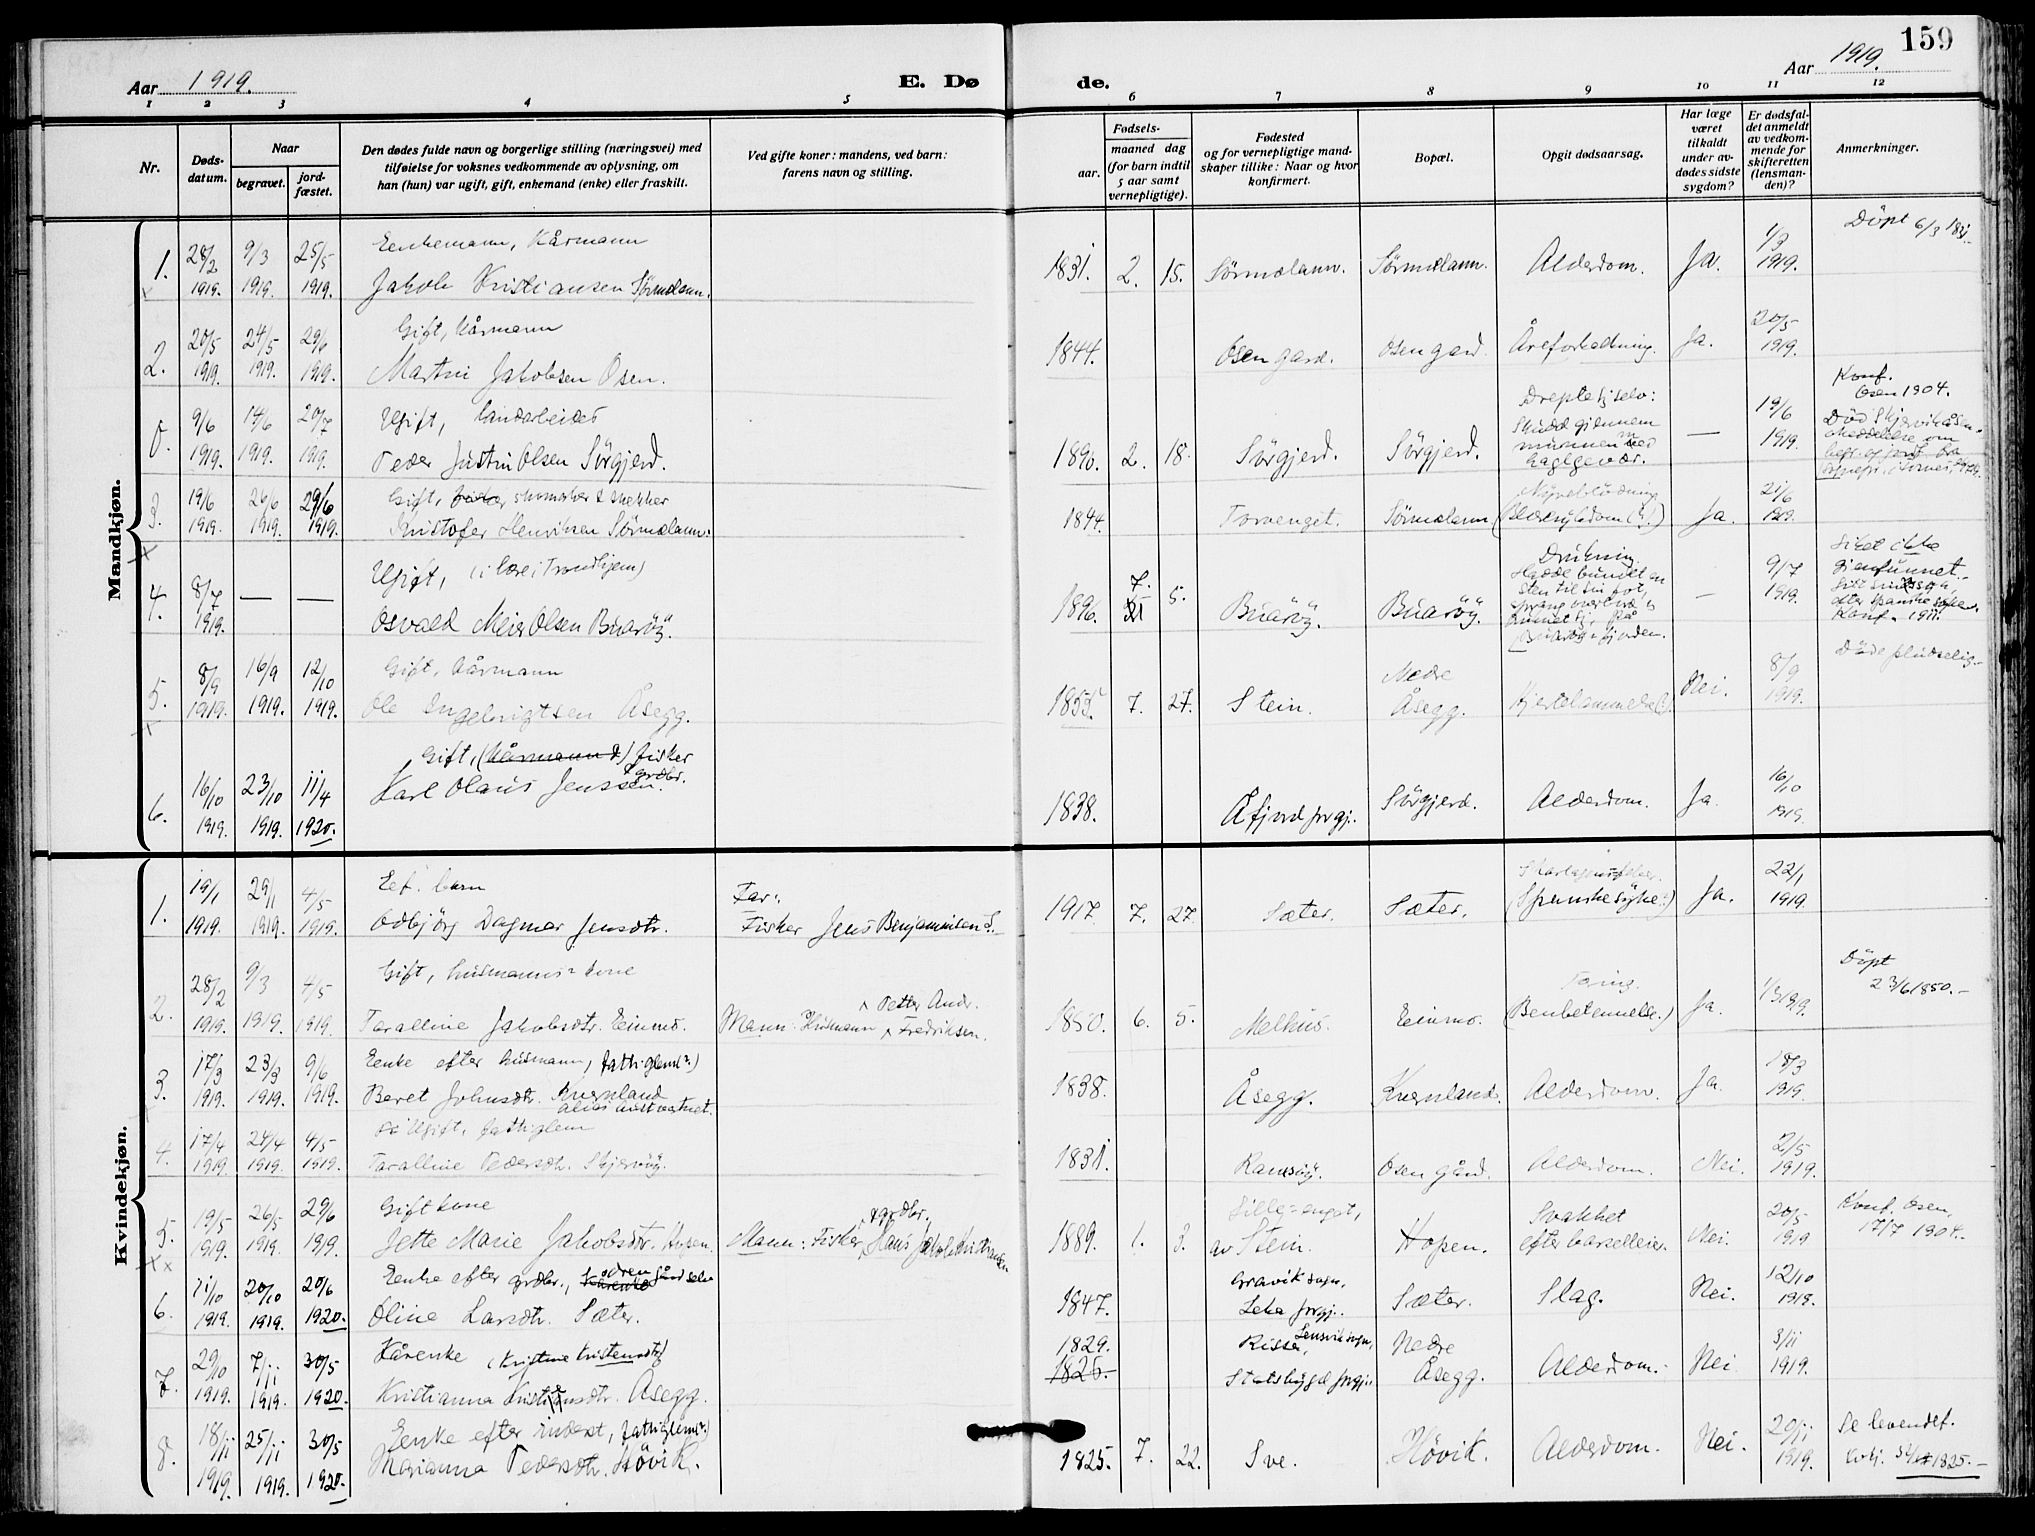 159
Aar 1919.
E. Dø
de.
Aar 1919.
1 2 3 4 5 6 7 8 9 10 11 12
Nr.
Døds-
datum.
Naar
begravet.
jord-
fæstet.
Den dødes fulde navn og borgerlige stilling (næringsvei) med
tilføielse for voksnes vedkommende av oplysning, om
han (hun) var ugift, gift, enkemand (enke) eller fraskilt.
Ved gifte koner: mandens, ved barn:
farens navn og stilling.
Fødsels-
aar.
maaned dag
(for barn indtil
5 aar samt
vernepligtige).
Fødested
og for vernepligtige mand-
skaper tillike: Naar og hvor
konfirmert.
Bopæl.
Opgit dødsaarsag.
Har læge
været
tilkaldt
under av-
dødes sidste
sygdom?
Er dødsfal-
det anmeldt
av vedkom-
mende for
skifteretten
(lensman-
den)?
Anmerkninger.
Mandkjøn.
Enkemann, Kårmann Døpt 6/3 1831.
1. 28/2 1919. 9/3 1919. 25/5 1919. Jakob Kristiansen Sörmelann. 1831. 2. 15. Sörmelann. Sörmelann. Alderdom. Ja. 1/3 1919.
Gift, Kårmann
2. 20/5 1919. 24/5 1919. 29/6 1919. Martin Jakobsen Osen. 1844. Osen gard. Osen gard. Åreforkalkning. Ja. 20/5 1919.
Ugift, landarbeider Drepte sj. selv: Konf. Osen 1904.
0. 9/6 1919. 14/6 1919. 20/7 1919. Peder Justin Olsen Sörgjerd. 1890. 2. 18. Sörgjerd. Sörgjerd. Skudd gjennem munnen med haglgevær. — 19/6 1919.
Gift, skomaker & snekker
3. 19/6 1919. 26/6 1919. 29/6 1919. Kristofer Henriksen Sörmelann. 1844. Torvenget. Sörmelann Ja. 21/6 1919.
Ugift, (i lære i Trondhjem) Drukning. Liket ikke
4. 8/7 1919. — — Osvald Meier Olsen Buaröy. 1896. 7. 5. Buaröy. Buaröy. Hadde bundet en sten til sin fot, sprang overbord — 9/7 1919. gjenfunnet. efter spanske syke. Konf. 1911.
Gift, Kårmann Døde pludselig.
5. 8/9 1919. 16/9 1919. 12/10 1919. Ole Ingebrigtsen Åsegg. 1855. 7. 27. Stein. Nedre Åsegg. Hjertelammelse(?). Nei. 8/9 1919.
Gift, (Kårmann?) fisker
6. 16/10 1919. 23/10 1919. 11/4 1920. Karl Olaus Jenssen. 1838. Åfjord prgj. Sörgjerd. Alderdom. Ja. 16/10 1919.
Kvindekjøn.
Ekt. barn Far: Skarlagensfeber.
1. 19/1 1919. 29/1 1919. 4/5 1919. Odbjörg Dagmar Jensdtr. Fisker Jens Benjaminsen S. 1917. 7. 27. Sæter. Sæter. (Spanskesyke?) Ja. 22/1 1919.
Gift, husmanns-kone Petter Andr. Tæring. Døpt
2. 28/2 1919. 9/3 1919. 4/5 1919. Taralline Jakobsdtr. Einmo. Mann: Husmann Fredriksen. 1850. 6. 5. Melhus. Einmo. (Benbetennelse.) Ja. 1/3 1919. 23/6 1850.
Enke efter husmann, fattiglem(?)
3. 17/3 1919. 23/3 1919. 9/6 1919. Beret Johnsdtr. Kvernland 1838. Åsegg. Kvernland. Alderdom. Ja. 18/3 1919.
Ugift, fattiglem
4. 17/4 1919. 24/4 1919. 4/5 1919. Taralline Pedersdtr. Skjervöy. 1831. Ramsöy. Osen gård. Alderdom. Nei. 2/5 1919.
Gift kone gårdbr. Lille-enget, Svakhet Konf. Osen.
5. 19/5 1919. 26/5 1919. 29/6 1919. Jette Marie Jakobsdtr. Hopen. Mann: Fisker, Hans Jakob Kristiansen 1889. 1. 3. av Stein. Hopen. efter barselleie. Nei. 20/5 1919 17/7 1904.
Enke efter grdbr., Gravik sogn,
6. 11/10 1919. 20/10 1919. 20/6 1920. Oline Larsdtr. Sæter. 1847. Leka prgj. Sæter. Slag. Nei. 12/10 1919.
Kårenke (Kristine Kristensdtr) 1829. Rissa, Lensvik sogn, Nedre
7. 29/10 1919. 7/11 1919. 30/5 1920. Kristianna Kristensdtr. Åsegg. 1826. Stadsbygd prgj. Åsegg. Alderdom. Nei. 3/11 1919.
Enke efter inderst, fattiglem(?) Se levendef.
8. 18/11 1919. 25/11 1919. 30/5 1920. Marianna Pedersdtr. Hövik. 1825. 7. 22. Sve. Hövik. Alderdom. Nei. 20/11 1919. 1825.